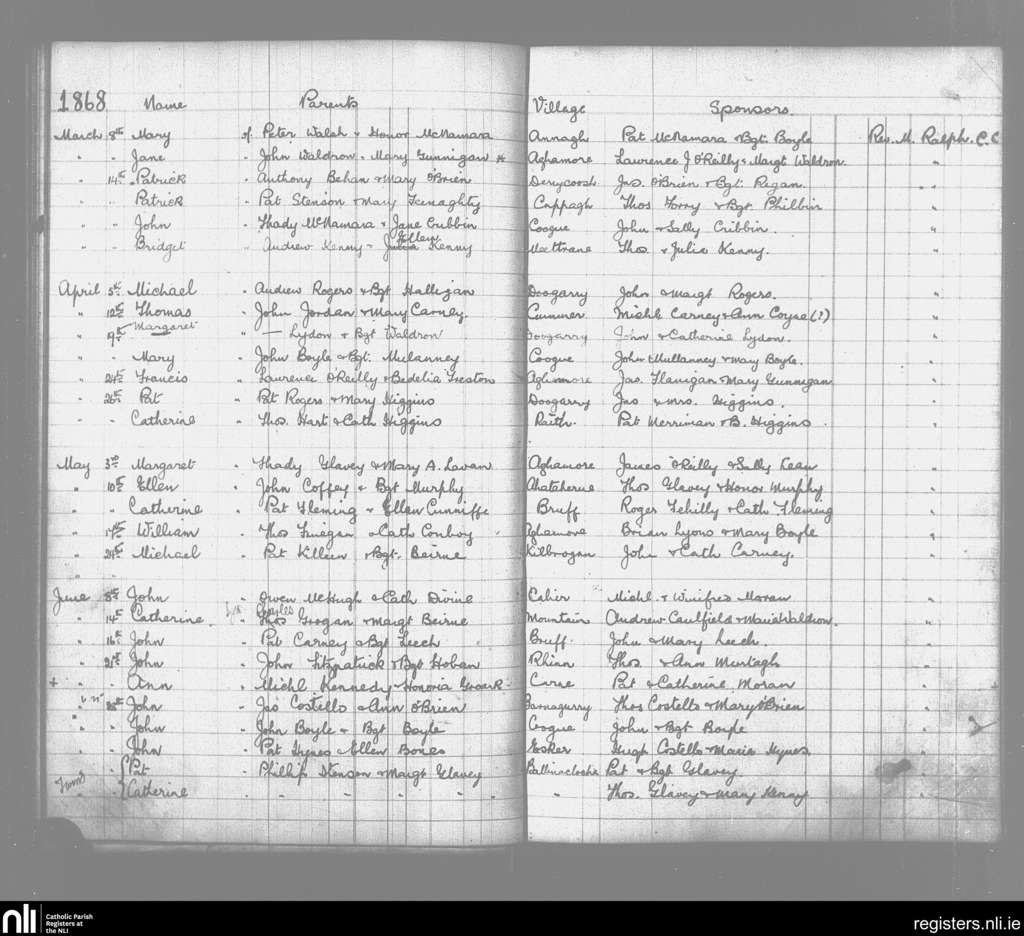 1868 Name Parents Village Sponsors
March 8th Mary of Peter Walsh & Honor McNamara Annagh Pat McNamara & Bgt. Boyle Rev. M. Ralph. C.C
" " Jane " John Waldron & Mary Gunnigan Aghamore Lawrence J O'Reilly & Margt Waldron. "
" 14th Patrick " Anthony Behan & Mary O'Brien Derrycoosh Jas. O'Brien & Bgt. Regan. "
" " Patrick " Pat Stenson & Mary Cappagh Thos Forry & Bgt. Philbin "
" " John " Thady McNamara & Jane Cribbin Coogue John & Sally Cribbin. "
" " Bridget " Andrew Kenny & Ellen Kenny Thos. & Julia Kenny. "
April 5th Michael " Andrew Rogers & Bgt Halligan Doogarry John & Margt Rogers. "
" 12th Thomas " John Jordan & Mary Carney Cummer Michl Carney & Ann Coyne (?) "
" 19th Margaret " — Lydon & Bgt Waldron Doogarry John & Catherine Lydon. "
" " Mary " John Boyle & Bgt. Mulanney Coogue John Mullanney & Mary Boyle. "
" 24th Francis " Laurence O'Reilly & Bedelia Freston Aghamore Jas. Flanigan Mary Gunnigan "
" 26th Pat " Pat Rogers & Mary Higgins Doogarry Jas & Mrs. Higgins. "
" " Catherine " Thos. Hart & Cath Higgins Raith. Pat Merriman & B. Higgins. "
May 3rd Margaret " Thady Glavey & Mary A. Lavan Aghamore James O'Reilly & Sally Lean "
" 10th Ellen " John Coffey & Bgt Murphy Ahatcherne Thos Glavey & Honor Murphy "
" " Catherine " Pat Fleming & Ellen Cunniffe Bruff Roger Tehilly & Cath Fleming "
" 17th William " Thos Finegan & Cath Conboy Aghamore Brian Lyons & Mary Boyle "
" 24th Michael " Pat Killeen & Bgt. Beirne Kilbrogan John & Cath Carney. "
June 8th John " Owen McHugh & Cath Divine Caher Michl. & Winifred Moran "
" 14th Catherine " Thos Grogan & Margt Beirne Mountain Andrew Caulfield & Maria Waldron. "
" 16th John " Pat Carney & Bgt Leech Bruff. John & Mary Leech. "
" 21st John " John Fitzpatrick & Bgt Hoban Rhinn Thos. & Ann Murtagh "
+ " Ann " Michl Kennedy & Honoria Carne Pat & Catherine Moran "
" 28th John " Jas Costello & Ann O'Brien Barnagurry Thos Costello & Mary O'Brien "
" " John " John Boyle & Bgt Boyle Coogue John & Bgt Boyle "
" " John " Pat Hynes & Ellen Bones Esker Hugh Costello & Maria Hynes. "
" " { Pat " Phillip Stenson & Margt Glavey Ballinacloche Pat & Bgt Glavey "
" " { Catherine " " " " " Thos. Glavey & Mary Kenny "
nli Catholic Parish
Registers at
the NLI
registers.nli.ie